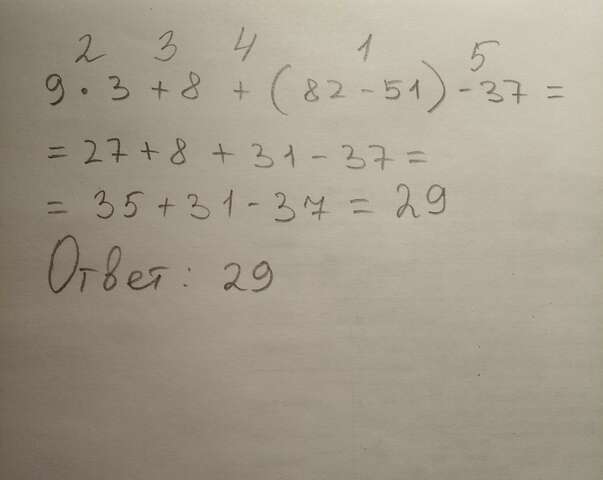 2 3 4 1 5
9 · 3 + 8 + (82 - 51) - 37 =
= 27 + 8 + 31 - 37 =
= 35 + 31 - 37 = 29
Ответ: 29